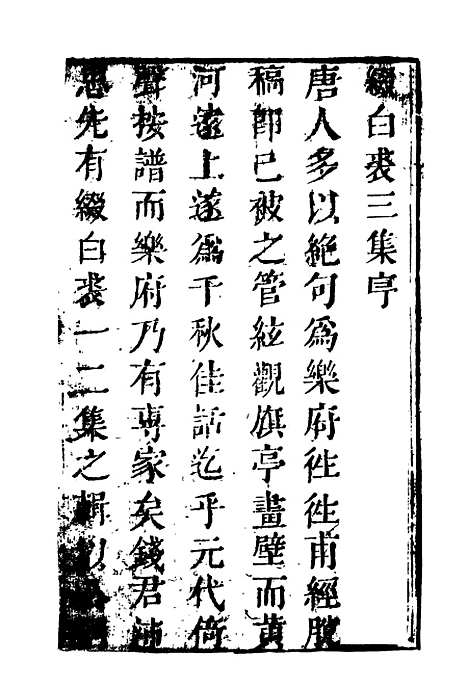 綴白裘三集序
唐人多以絶句爲樂府徃徃甫經脫
稿卽已被之管絃觀旗亭畫壁而黃
河遠上遂爲千秋佳話迄乎元代倚
聲按譜而樂府乃有專家矣錢君沛
思先有綴白裘一二集之輯以